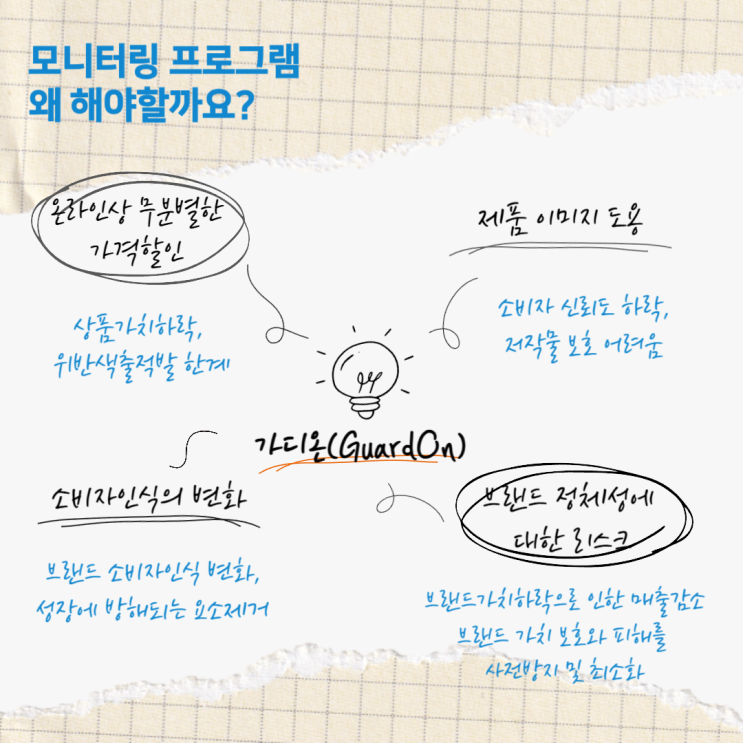 모니터링 프로그램
왜 해야할까요?
온라인상 무분별한
가격할인
상품가치하락,
위반색출적발 한계
제품 이미지 도용
소비자 신뢰도 하락,
저작물 보호 어려움
가디온(GuardOn)
소비자인식의 변화
브랜드 소비자인식 변화,
성장에 방해되는 요소제거
브랜드 정체성에
대한 리스크
브랜드가치하락으로 인한 매출감소
브랜드 가치 보호와 피해를
사전방지 및 최소화